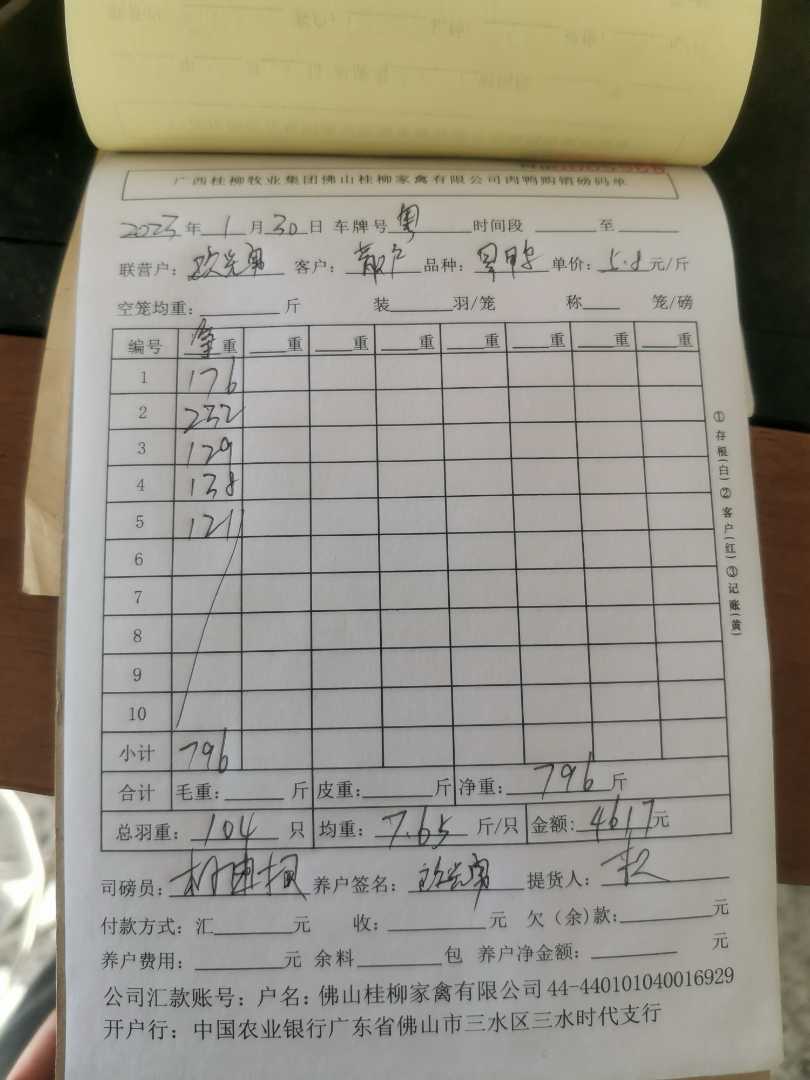 广西桂柳牧业集团佛山桂柳家禽有限公司肉鸭购销磅码单
2023年1月30日 车牌号粤 时间段 至
联营户: 欧光勇 客户: 散户 品种: 单价: 5.8元/斤
空笼均重: 斤 装 羽/笼 称 笼/磅
编号 重 重 重 重 重 重 重 重
1 176
2 232
3 129
4 138
5 121
6
7
8
9
10
小计 796
合计 毛重: 斤 皮重: 斤 净重: 796斤
总羽重: 104 只 均重: 7.65 斤/只 金额: 4617元
司磅员: 养户签名: 欧光勇 提货人:
付款方式: 汇 元 收: 元 欠(余)款: 元
养户费用: 元 余料 包 养户净金额: 元
公司汇款账号: 户名: 佛山桂柳家禽有限公司 44-440101040016929
开户行: 中国农业银行广东省佛山市三水区三水时代支行
①存根(白)②客户(红)③记账(黄)